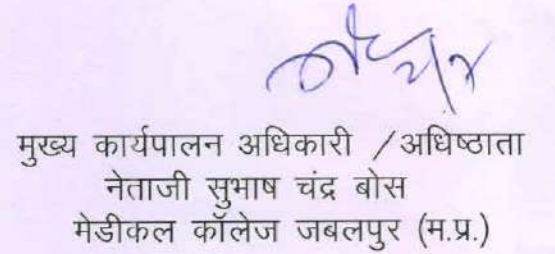 मुख्य कार्यपालन अधिकारी /अधिष्ठाता
नेताजी सुभाष चंद्र बोस
मेडीकल कॉलेज जबलपुर (म.प्र.)